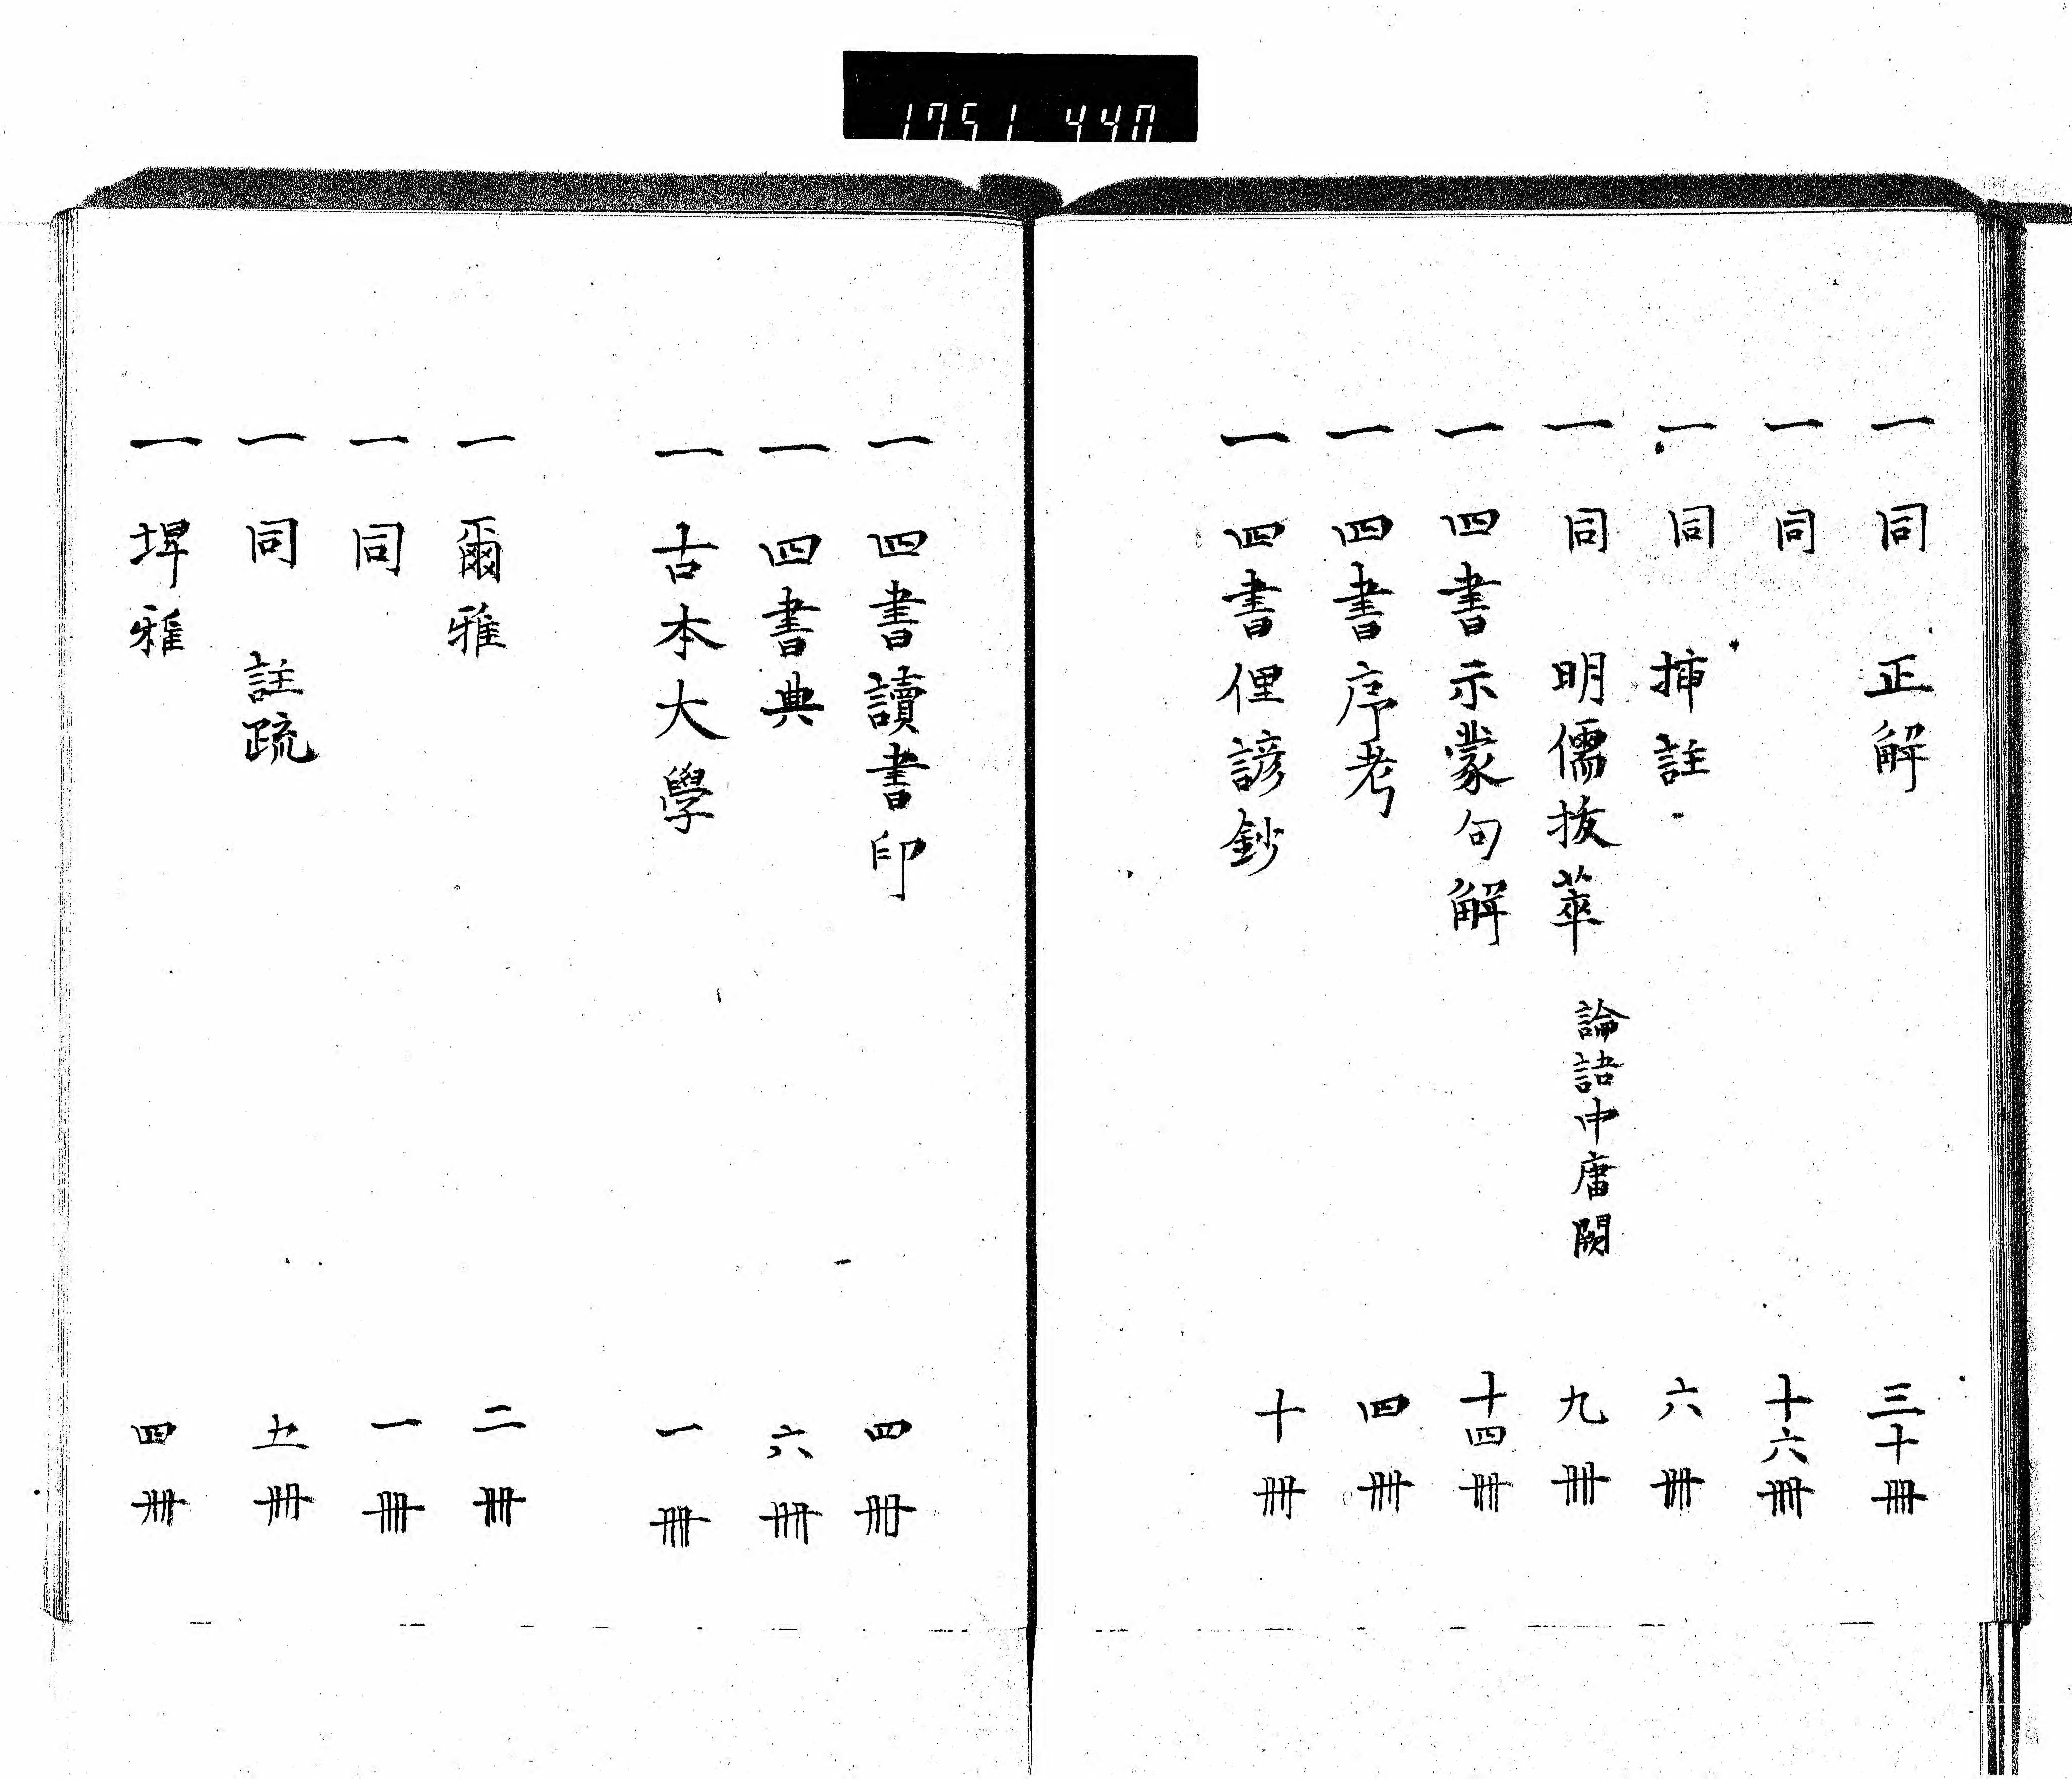 1751 440
一 同 正解 三十冊
一 同 十六冊
一 同 挿註 六冊
一 同 明儒抜萃 論語中庸闕 九冊
一 四書示蒙句解 十四冊
一 四書序考 四冊
一 四書俚諺鈔 十冊
一 四書讀書印 四冊
一 四書典 六冊
一 古本大學 一冊
一 爾雅 二冊
一 同 一冊
一 同 註疏 五冊
一 埤雅 四冊